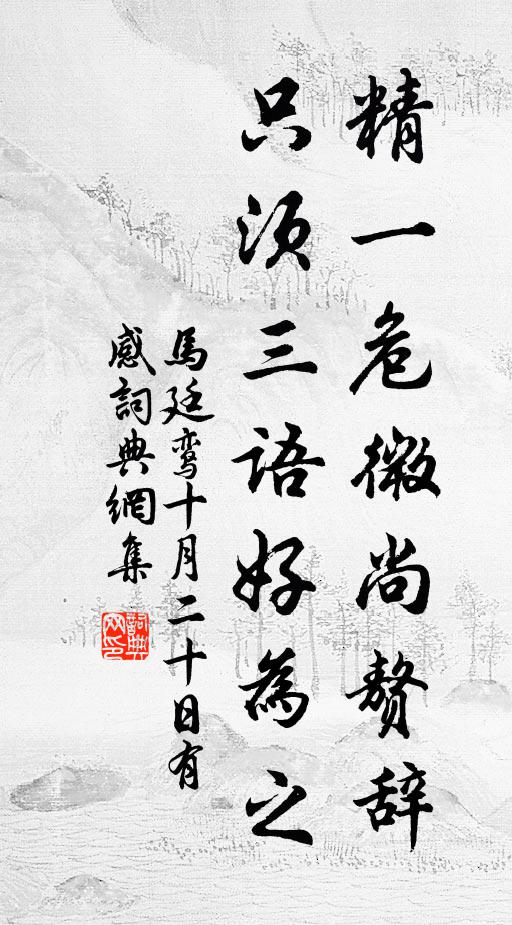 精一危微尚赘辞
只须三语好為之
馬廷鸾十月二十日有
感詞典網集
詞典网印